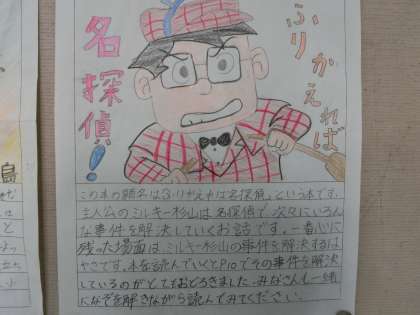 ふりかえれば
名探偵!
この本の題名はふりかえれば名探偵、という本です。
主人公のミルキー杉山は名探偵で、次々にいろん
な事件を解決していくお話です。一番心に
残った場面は、ミルキー杉山の事件を解決するは
やさです。本を読んでいくと、P10でその事件を解決
しているのがとてもおどろきました。みなさんも一緒
になぞを解きながら読んでみてください。
島